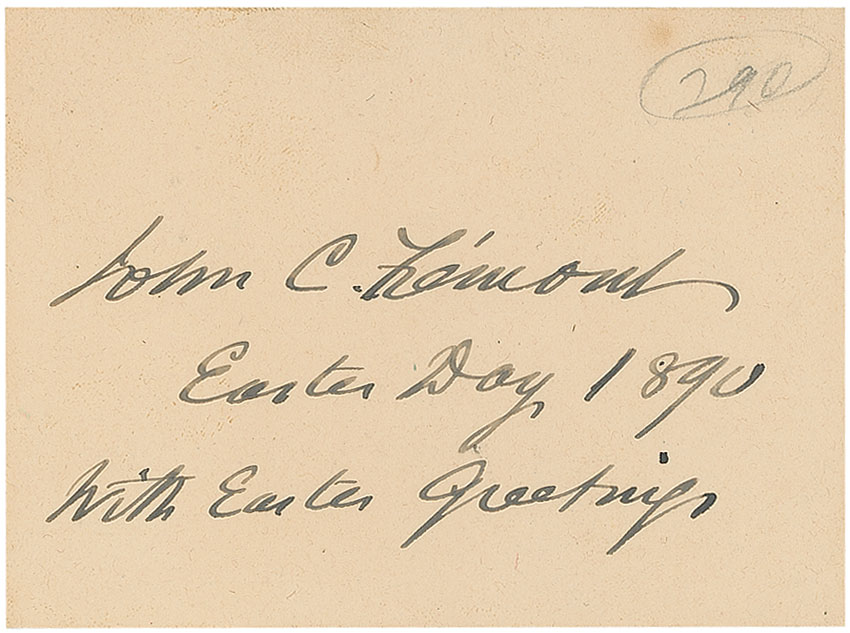 290
John C. Frémont
Easter Day 1890
With Easter Greetings